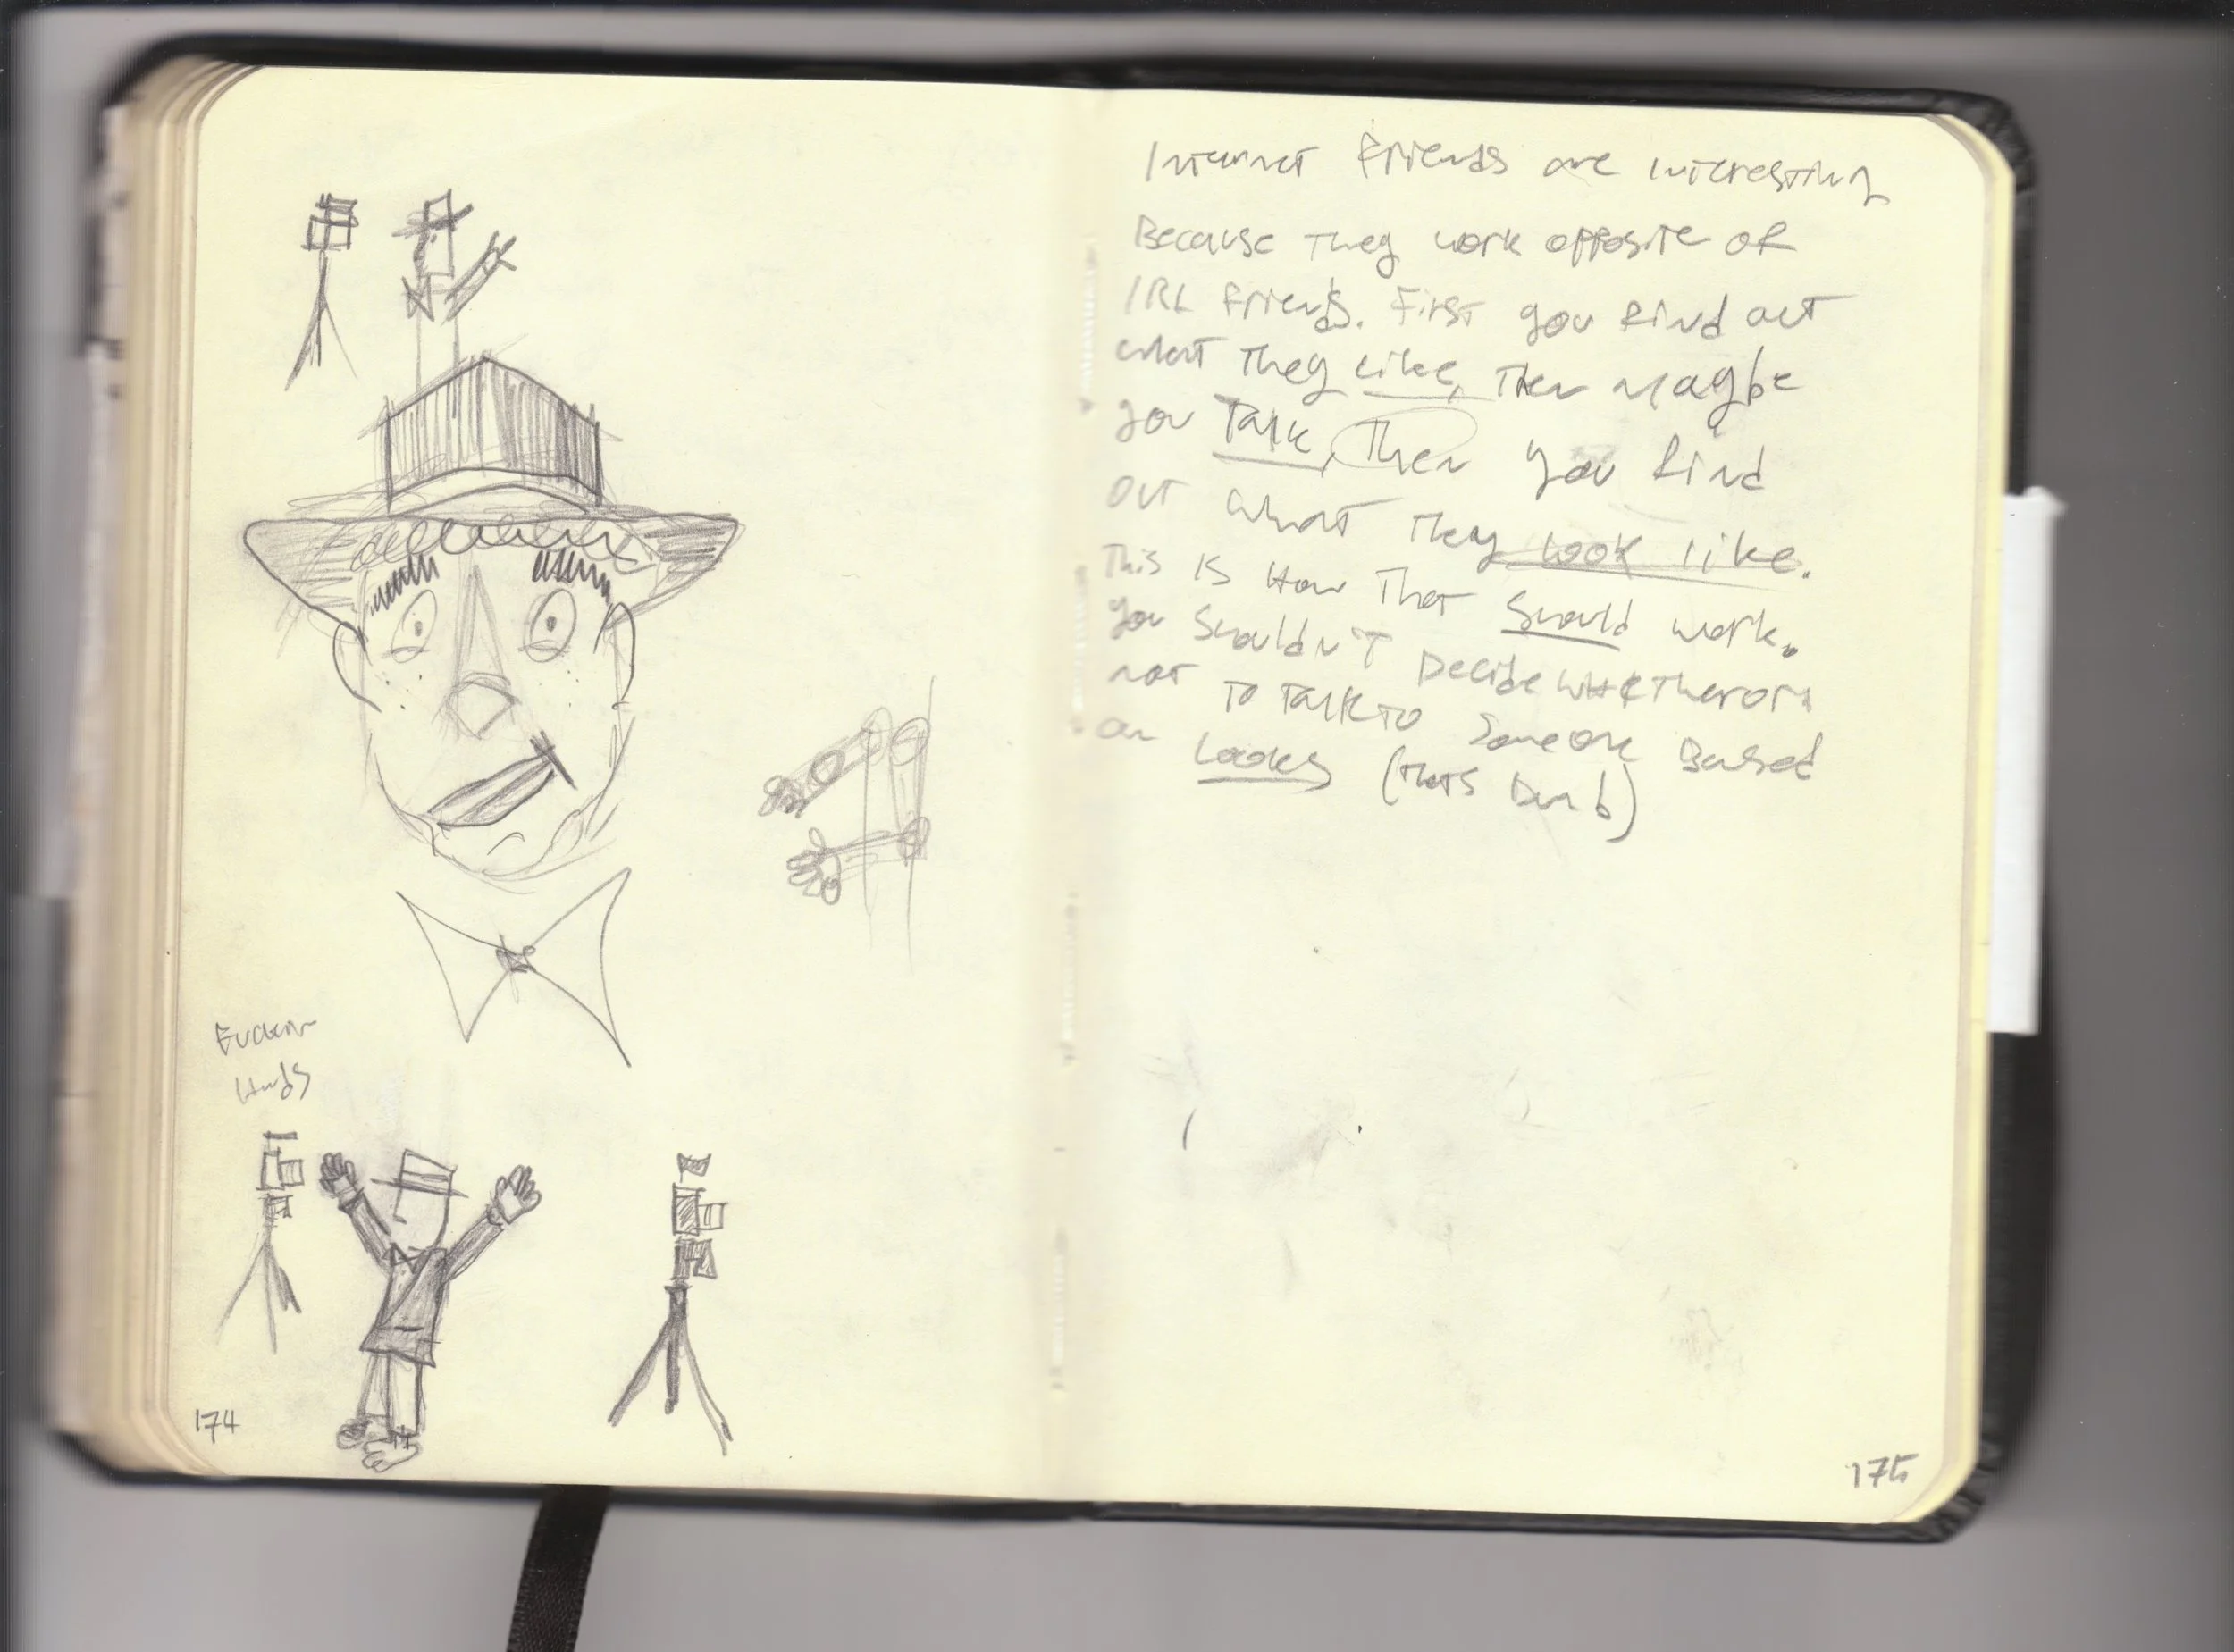 Fuckin
Hands
174
Internet Friends are interesting
Because they work opposite of
IRL Friends. First you find out
what they like, then maybe
you Talk, Then you find
out what they look like.
This is How That Should work.
you Shouldn't Decide whether or
not to talk to Someone Based
on Looks (thats Dumb)
175